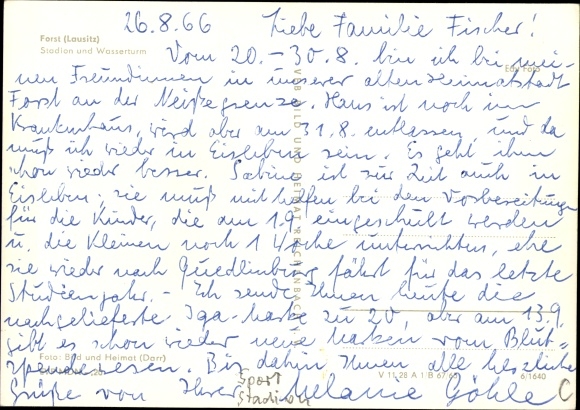 26.8.66 Liebe Familie Fischer!
Forst (Lausitz)
Stadion und Wasserturm
Vom 20.–30.8. bin ich bei mei-
nen Freundinnen in unserer alten Heimatstadt
Forst an der Neißegrenze. Hans ist noch im
Krankenhaus, wird aber am 31.8. entlassen, und da
muß ich wieder in Eisleben sein. Es geht ihm
schon wieder besser. Sabine ist zur Zeit auch in
Eisleben; sie muß mithelfen bei den Vorbereitungen
für die Kinder, die am 1.9. eingeschult werden
u. die Kleinen noch 1 Woche unterrichten, ehe
sie wieder nach Quedlinburg fährt für das letzte
Studienjahr. – Ich sende Ihnen heute die
nachgelieferte Iga-marke zu 20, aber am 13.9.
gibt es schon wieder neue marken vom Blut-
spendewesen. Bis dahin Ihnen alle herzliche
Grüße von Ihrer Melanie Göhle
Foto: Bild und Heimat (Darr)
V 11 28 A 1 B 67 65 6/1640
Sport
Stadion
VEB BILD UND HEIMAT REICHENBACH